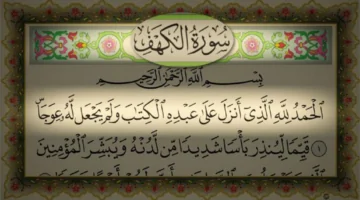 سُورَةُ الكَهْفِ
بِسْمِ اللَّهِ الرَّحْمَٰنِ الرَّحِيمِ
ٱلْحَمْدُ لِلَّهِ ٱلَّذِىٓ أَنزَلَ عَلَىٰ عَبْدِهِ ٱلْكِتَٰبَ وَلَمْ يَجْعَل لَّهُۥ عِوَجَاۜ
١ قَيِّمًا لِّيُنذِرَ بَأْسًا شَدِيدًا مِّن لَّدُنْهُ وَيُبَشِّرَ ٱلْمُؤْمِنِينَ